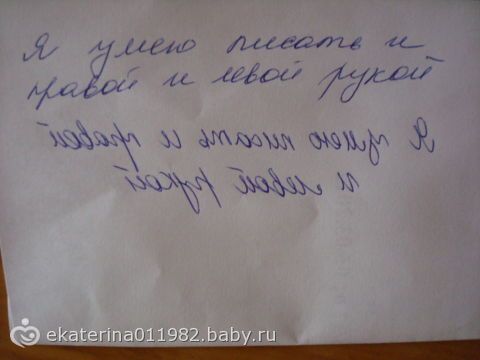 Я умею писать и
правой и левой рукой
Я умею писать и правой
и левой рукой
ekaterina011982.baby.ru